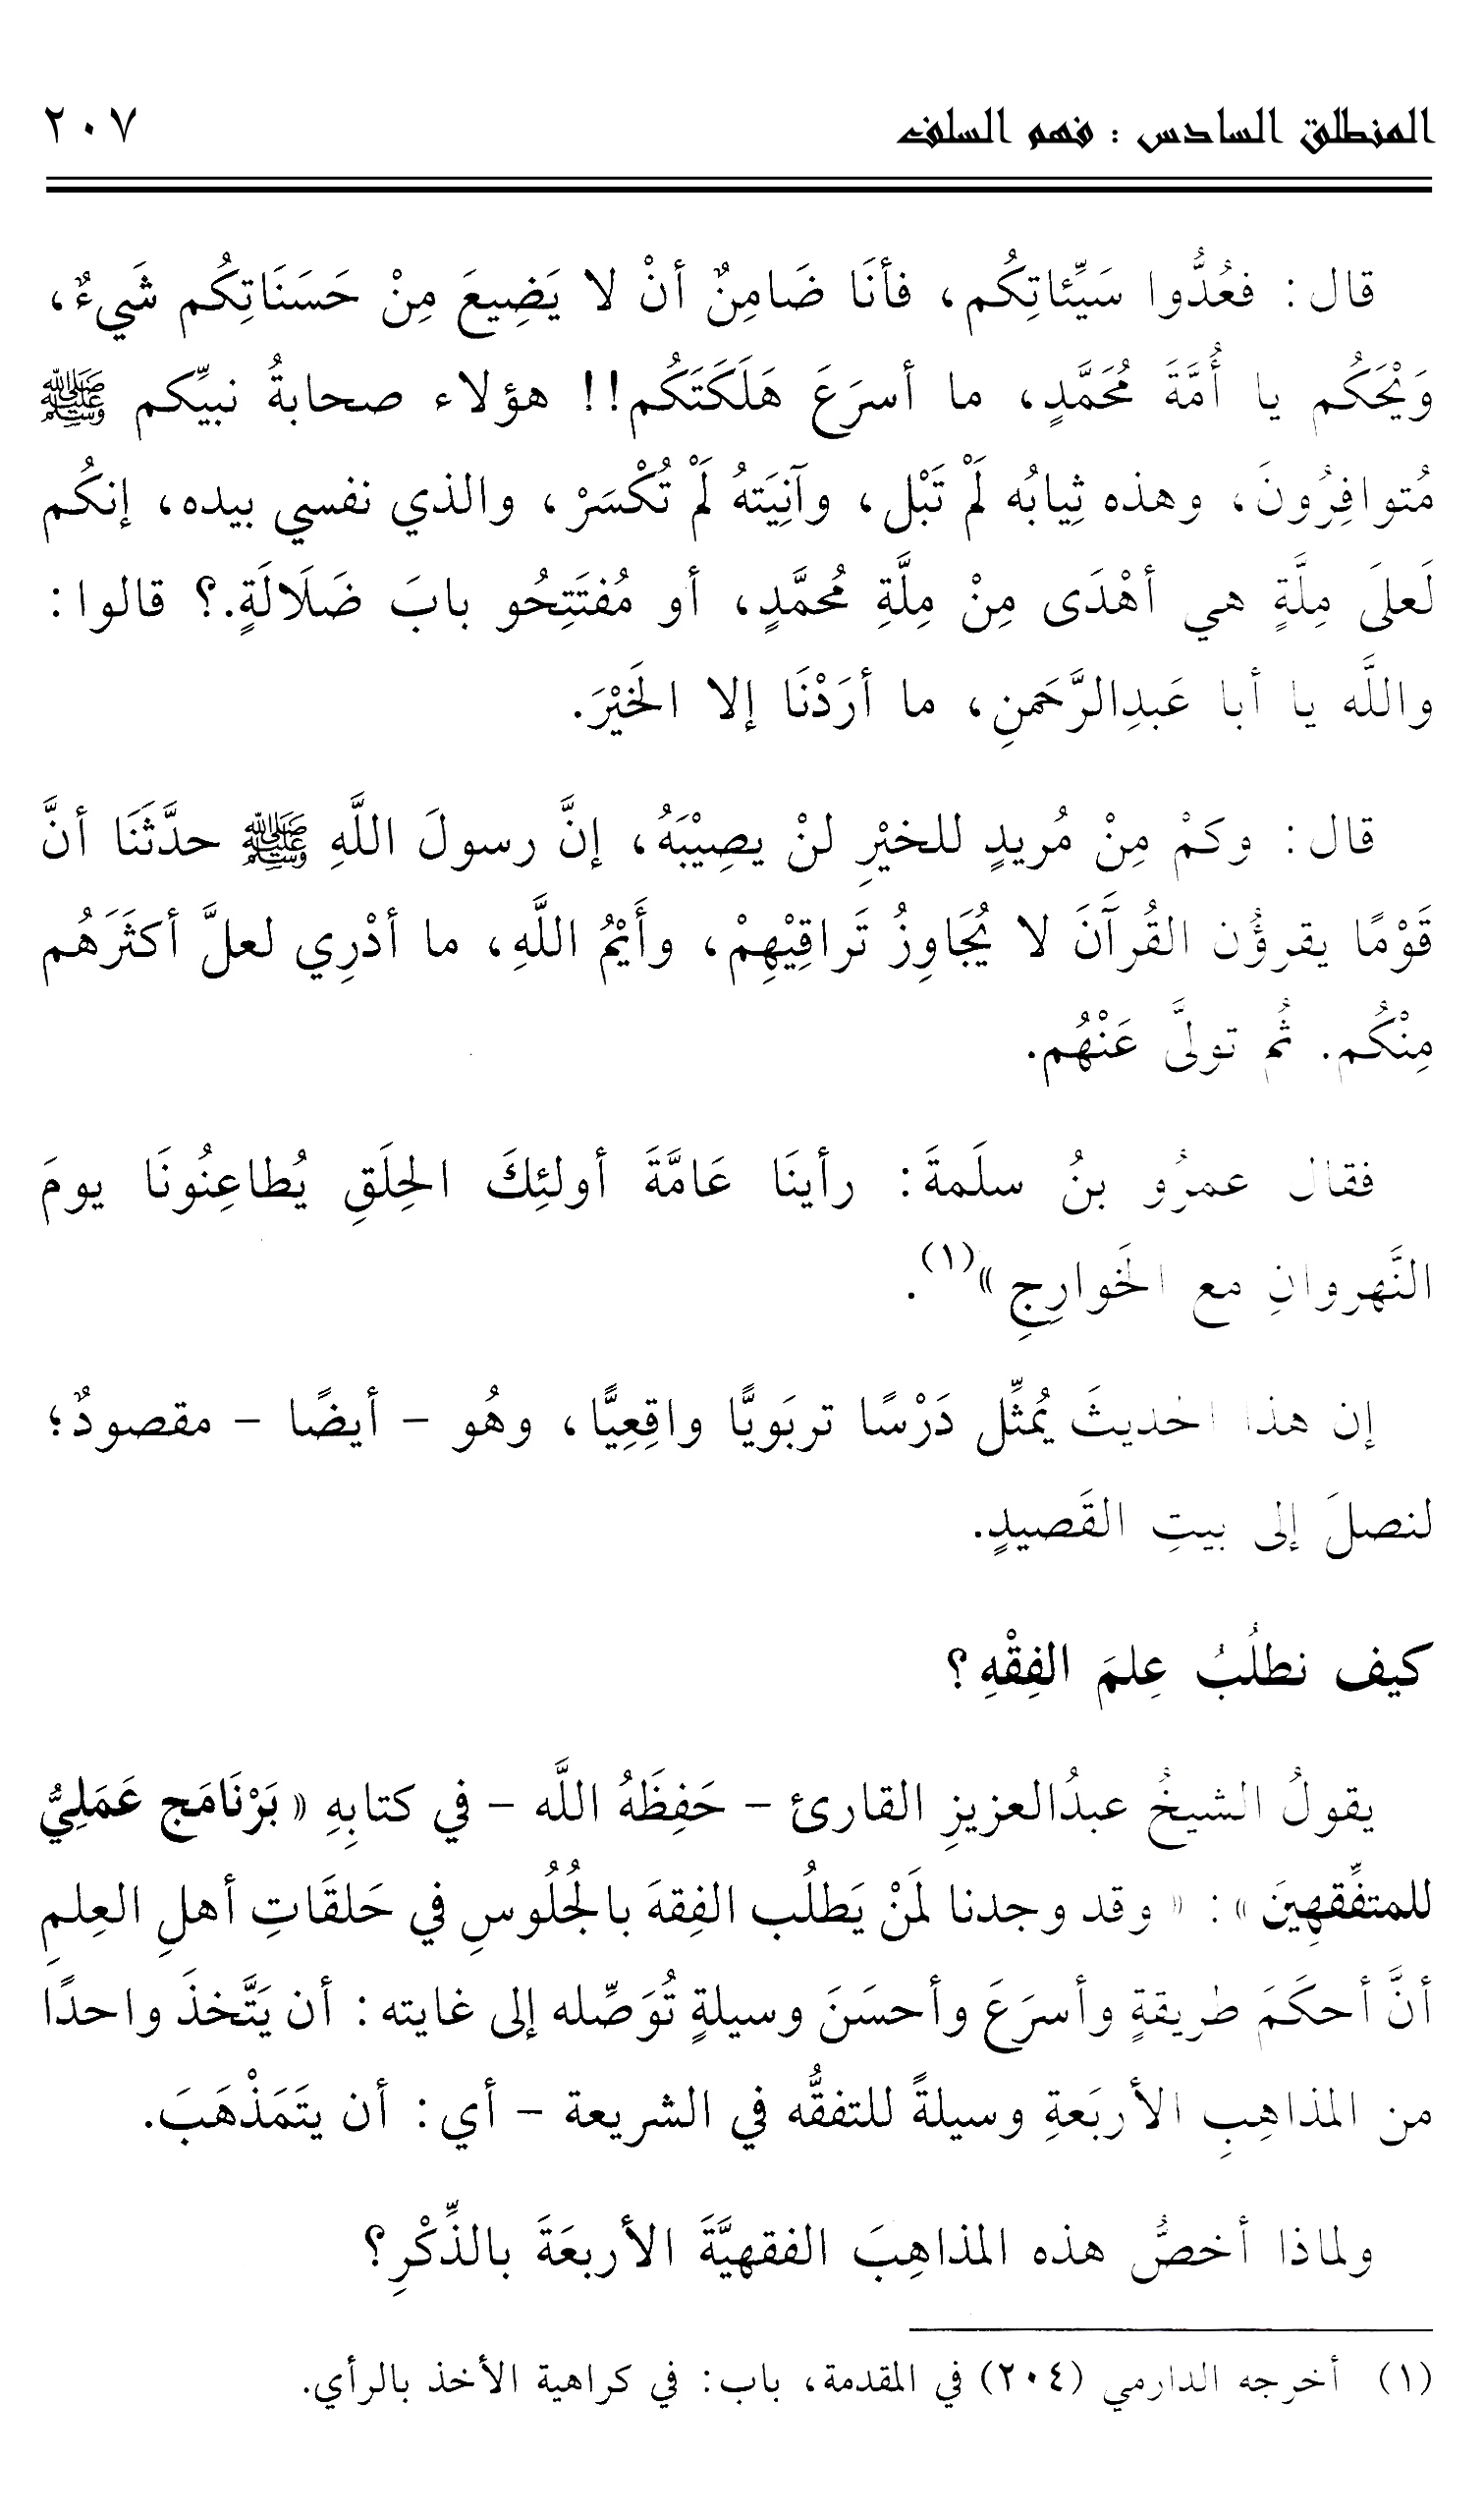 المنطلق السادس : فهم السلف ٢٠٧
قال : فعُدُّوا سَيِّئاتِكُم، فأنَا ضَامِنٌ أنْ لا يَضِيعَ مِنْ حَسَنَاتِكُم شَيءٌ،
وَيْحَكُم يا أُمَّةَ مُحَمَّدٍ، ما أسرَعَ هَلَكَتَكُم!! هؤلاء صحابةُ نبيِّكم ﷺ
مُتوافِرُونَ، وهذه ثِيابُه لَمْ تَبْل، وآنِيَتهُ لَمْ تُكْسَرْ، والذي نفسي بيده، إنكُم
لَعلَى مِلَّةٍ هي أهْدَى مِنْ مِلَّةِ مُحمَّدٍ، أو مُفتَتِحُو بابَ ضَلَالَةٍ.؟ قالوا :
واللَّه يا أبا عَبدِالرَّحَمنِ، ما أرَدْنَا إلا الخَيْرَ.
قال : وكَمْ مِنْ مُريدٍ للخيْرِ لنْ يصِيْبَهُ، إنَّ رسولَ اللَّهِ ﷺ حدَّثَنَا أنَّ
قَوْمًا يقرؤُن القُرآنَ لا يُجَاوِزُ تَراقِيْهِمْ، وأَيْمُ اللَّهِ، ما أدْرِي لعلَّ أكثَرَهُم
مِنْكُم. ثُم تولىَّ عَنْهُم.
فقال عمرُو بنُ سلَمةَ : رأينَا عَامَّةَ أولئِكَ الحِلَقِ يُطاعِنُونَا يومَ
النَّهروانِ مع الخَوارِجِ »(١).
إن هذا الحديثَ يُمثِّل دَرْسًا تربَويًّا واقِعِيًّا، وهُو – أيضًا – مقصودٌ؛
لنصلَ إلى بيتِ القَصيدٍ.
كيف نطلُبُ عِلمَ الفِقْهِ؟
يقولُ الشيخُ عبدُالعزيزِ القارئ – حَفِظَهُ اللَّه – في كتابِهِ « بَرْنَامَج عَمَلِيُّ
للمتفِّقهِينَ » : « وقد وجدنا لمَنْ يَطلُب الفِقهَ بالجُلُوسِ في حَلقَاتِ أهلِ العِلمِ
أنَّ أحكَمَ طريقةٍ وأسرَعَ وأحسَنَ وسيلةٍ تُوَصِّله إلى غايته : أن يَتَّخذَ واحدًا
من المذاهِبِ الأربَعةِ وسيلةً للتفقُّه في الشريعة – أي : أن يتَمَذْهَبَ.
ولماذا أخصُّ هذه المذاهِبَ الفقهيَّةَ الأربعَةَ بالذِّكْرِ؟
(١) أخرجه الدارمي (٢٠٤) في المقدمة، باب : في كراهية الأخذ بالرأي.